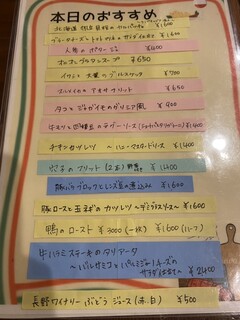 本日のおすすめ
¥1600
ブラータチーズとトマトの
人参のポタージュ ¥400
オニオングラタンスープ ¥650
イワシと大葉のブルスケッタ ¥700
アオサフリット ¥650
タコとジャガイモのガリシア風 ¥900
¥1400
チキンカツレツ ~ハニーマスタードソース ¥1400
のフリット (2本) ¥1400
豚バラブロックとレンズ豆の煮込み ¥1600
豚ロースと玉ネギのカツレツ ~デミグラスソース~ ¥1600
鴨のロースト ¥3000 (一枚) ¥1600 (ハーフ)
牛ハラミステーキのタリアータ
~バルサミコとパルミジャーノチーズの
サラダ仕立て~ ¥2400
長野ワイナリー ぶどうジュース (赤、白) ¥500